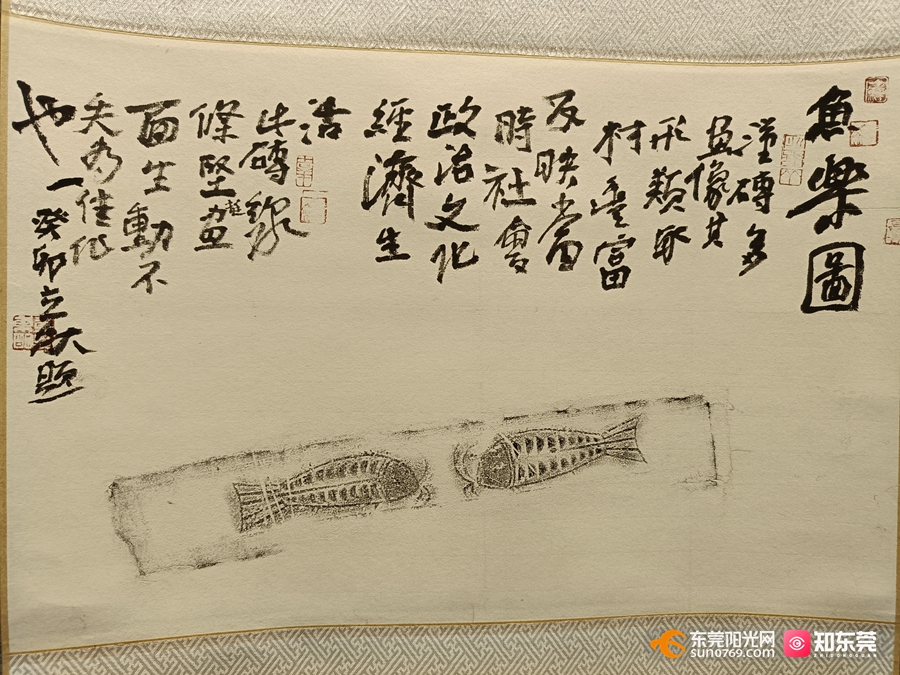 魚樂圖
漢磚多
畫像其
形類取
材豐富
反映當
時社會
政治文化
經濟生
活
此磚線
條堅畫
面生動不
失為佳作
也
癸卯立秋題
东莞阳光网
sun0769.com
知东莞
ZHIDONGGUAN